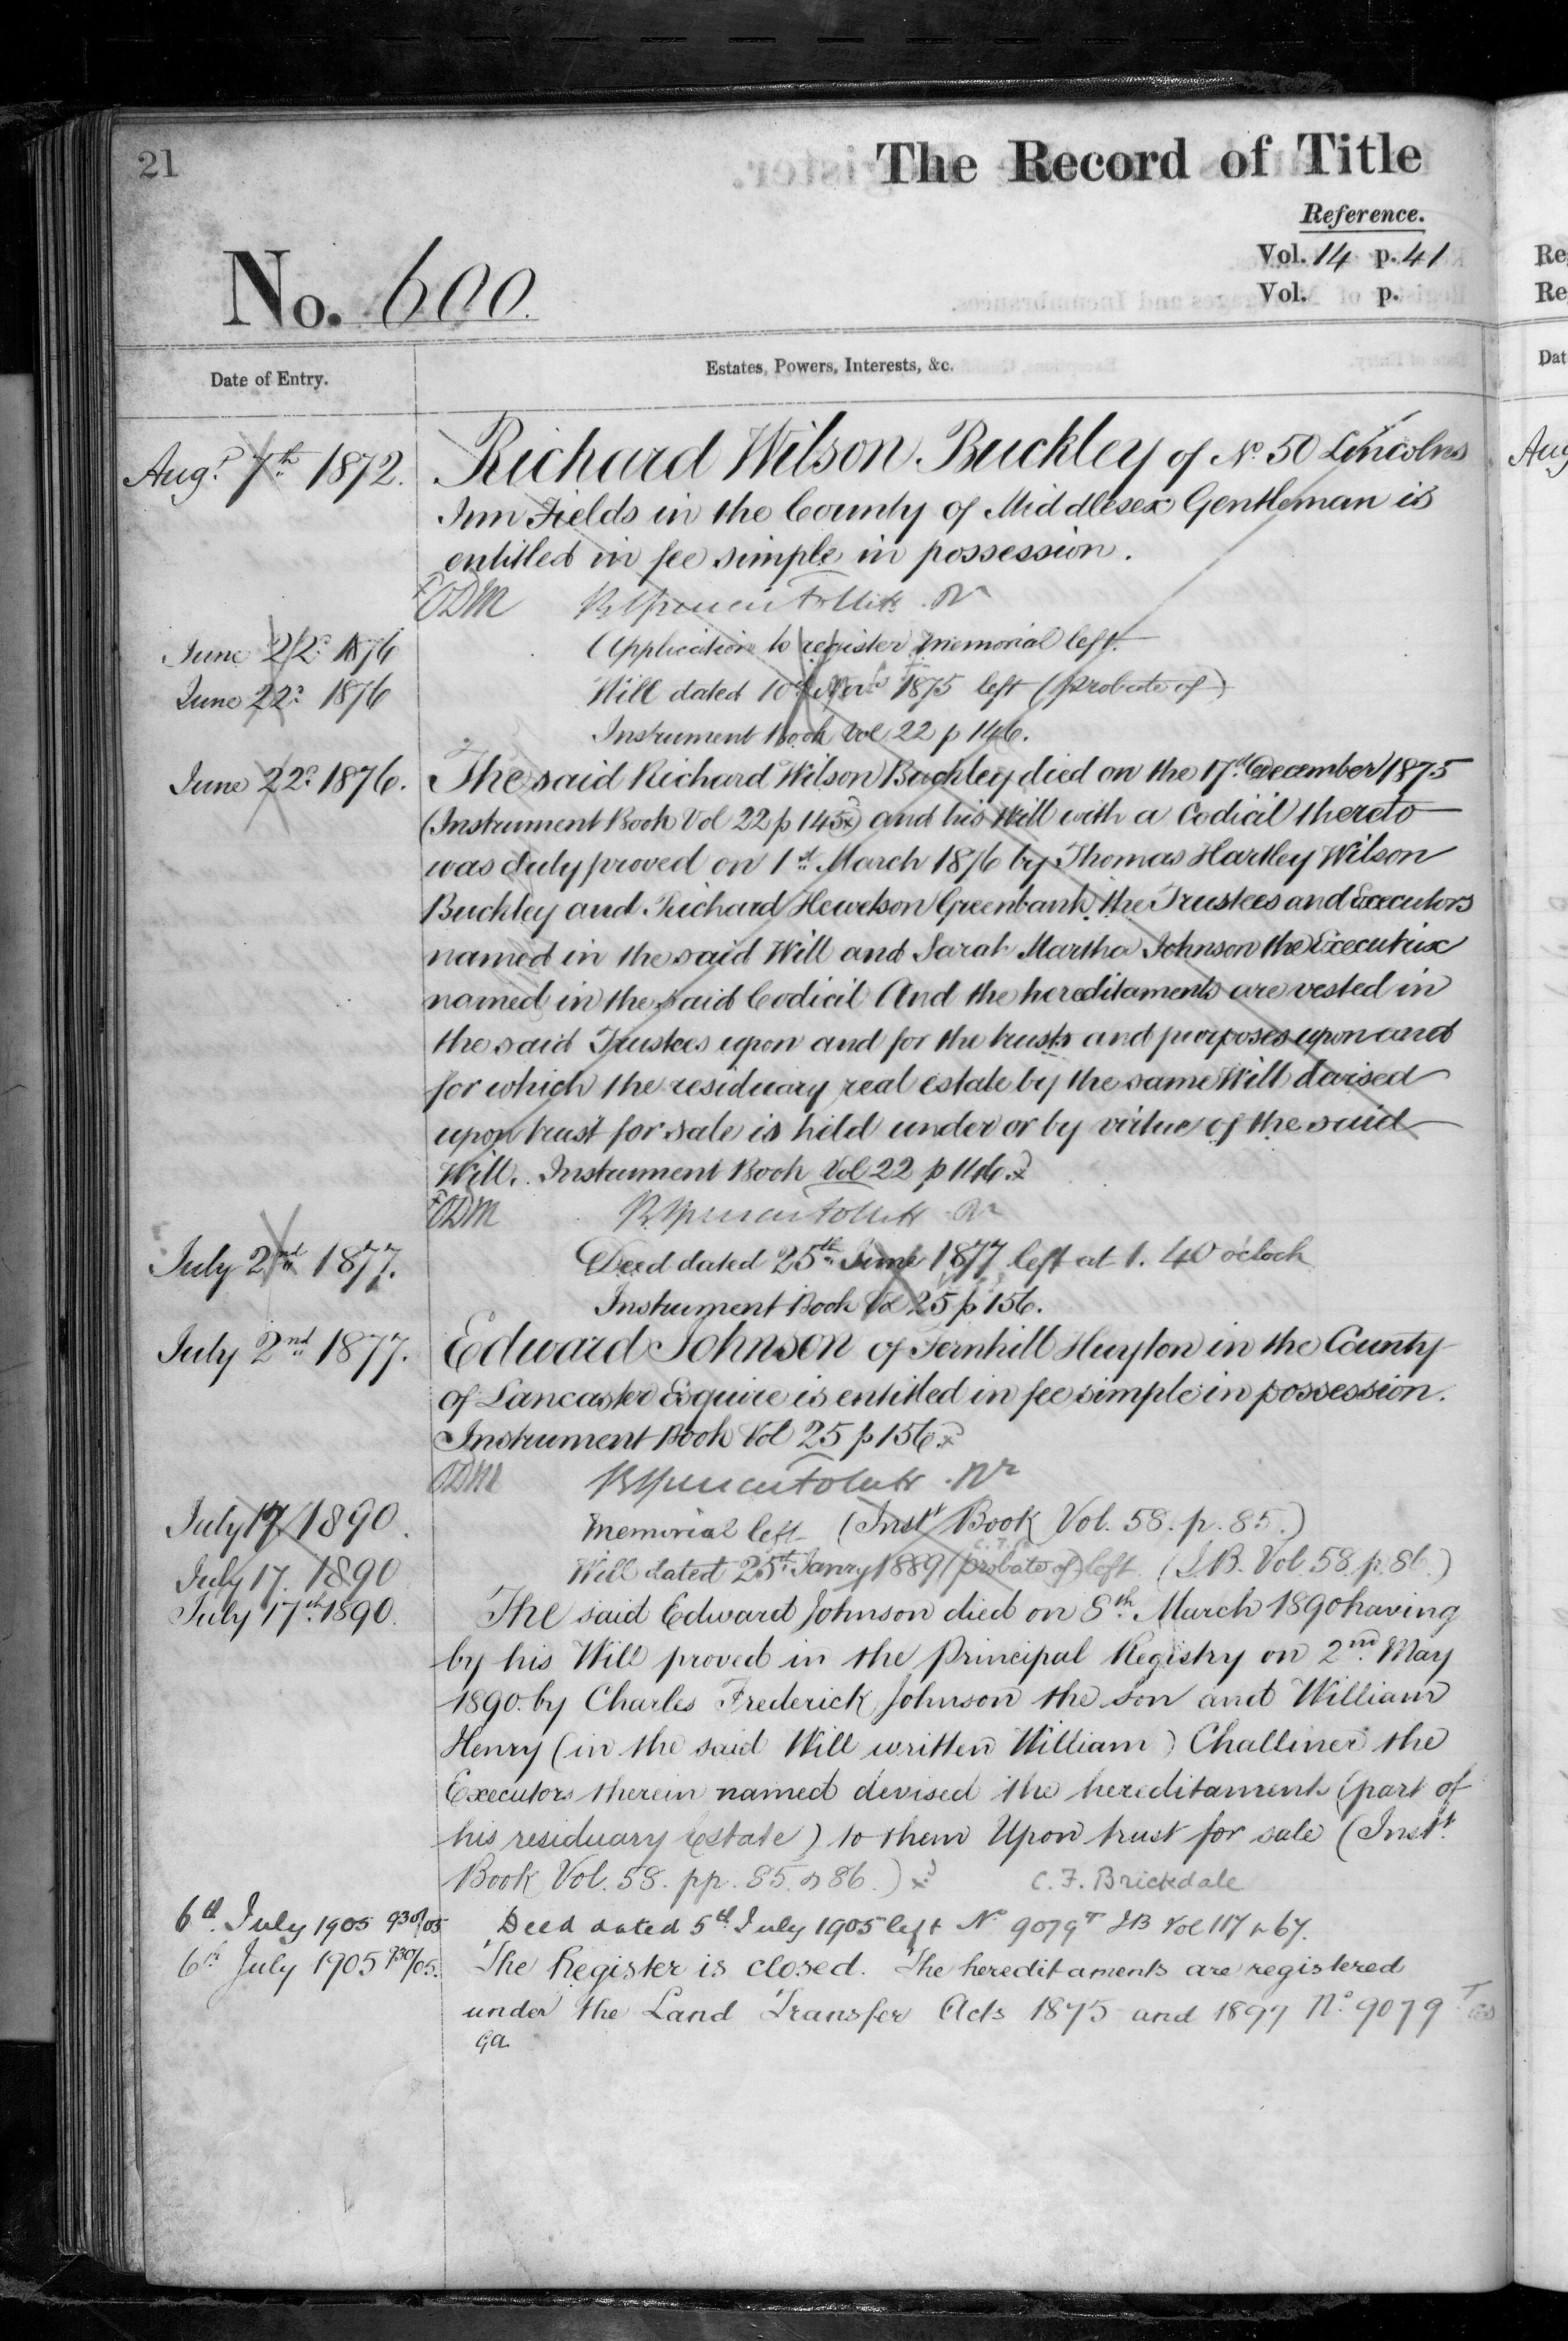 21
The Record of Title
Reference.
Vol. 14 p. 41
Vol. p.
No. 600.
Date of Entry.
Estates, Powers, Interests, &c.
Augt 7th 1872. Richard Wilson Buckley of No. 50 Lincolns
Inn Fields in the County of Middlesex Gentleman is
entitled in fee simple in possession.
ODM
June 22d 1876 Application to register memorial left.
June 22d 1876 Will dated 10th 1875 left (Probate of)
Instrument Book Vol 22 p 146.
June 22d 1876. The said Richard Wilson Buckley died on the 17th December 1875
(Instrument Book Vol 22 p 145) and his Will with a Codicil thereto
was duly proved on 1st March 1876 by Thomas Hartley Wilson
Buckley and Richard Hewetson Greenbank the Trustees and Executors
named in the said Will and Sarah Martha Johnson the Executrix
named in the said Codicil And the hereditaments are vested in
the said Trustees upon and for the trusts and purposes upon and
for which the residuary real estate by the same Will devised
upon trust for sale is held under or by virtue of the said
Will. Instrument Book Vol 22 p 146.
ODM
July 2nd 1877. Deed dated 25th June 1877 left at 1.40 o'clock
Instrument Book Vol 25 p 156.
July 2nd 1877. Edward Johnson of Fernhill Huyton in the County
of Lancaster Esquire is entitled in fee simple in possession.
Instrument Book Vol 25 p 156
ODM
July 17 1890. Memorial left (Inst Book Vol. 58. p. 85.)
July 17. 1890 Will dated 25th Janry 1889 (probate of) left. (I.B. Vol 58. p. 86.)
July 17th 1890. The said Edward Johnson died on 8th March 1890 having
by his Will proved in the Principal Registry on 2nd May
1890. by Charles Frederick Johnson the son and William
Henry (in the said Will written William) Challiner the
Executors therein named devised the hereditaments (part of
his residuary Estate) to them Upon trust for sale (Instt.
Book Vol. 58. pp. 85. & 86.) C. F. Brickdale
6th July 1905 930/05 Deed dated 5th July 1905 left No 9079T IB Vol 117 p 67.
6th July 1905 930/05. The Register is closed. The hereditaments are registered
under the Land Transfer Acts 1875 and 1897 No. 9079
Re
Re
Dat
Aug